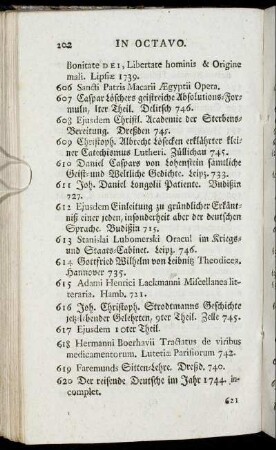 202 IN OCTAVO.
Bonitate DEI, Libertate hominis & Origine
mali. Lipsiæ 1739.
606 Sancti Patris Macarii Ægyptii Opera.
607 Caspar Löschers geistreiche Absolutions-For-
muln, 1ter Theil. Delitsch 746.
608 Ejusdem Christl. Academie der Sterbens-
Bereitung. Dreßden 745.
609 Christoph. Albrecht Löseken erklährter klei-
ner Catechismus Lutheri. Züllichau 745.
610 Daniel Caspars von Lohenstein sämtliche
Geist- und Weltliche Gedichte. Leipz. 733.
611 Joh. Daniel Longolii Patiente. Budißin
727.
612 Ejusdem Einleitung zu gründlicher Erkänt-
niß einer jeden, insonderheit aber der deutschen
Sprache. Budißin 715.
613 Stanislai Lubomerski Oracul im Kriegs-
und Staats-Cabinet. Leipz. 746.
614 Gottfried Wilhelm von Leibnitz Theodicea.
Hannover 735.
615 Adami Henrici Lackmanni Miscellanea lit-
teraria. Hamb. 721.
616 Joh. Christoph. Strodtmanns Geschichte
jetzlebender Gelehrten, 9ter Theil. Zelle 745.
617 Ejusdem 10ter Theil.
618 Hermanni Boerhavii Tractatus de viribus
medicamentorum. Lutetiæ Parisiorum 742.
619 Faremunds Sitten-Lehre. Dreßd. 740.
620 Der reisende Deutsche im Jahr 1744. in-
complet.
621